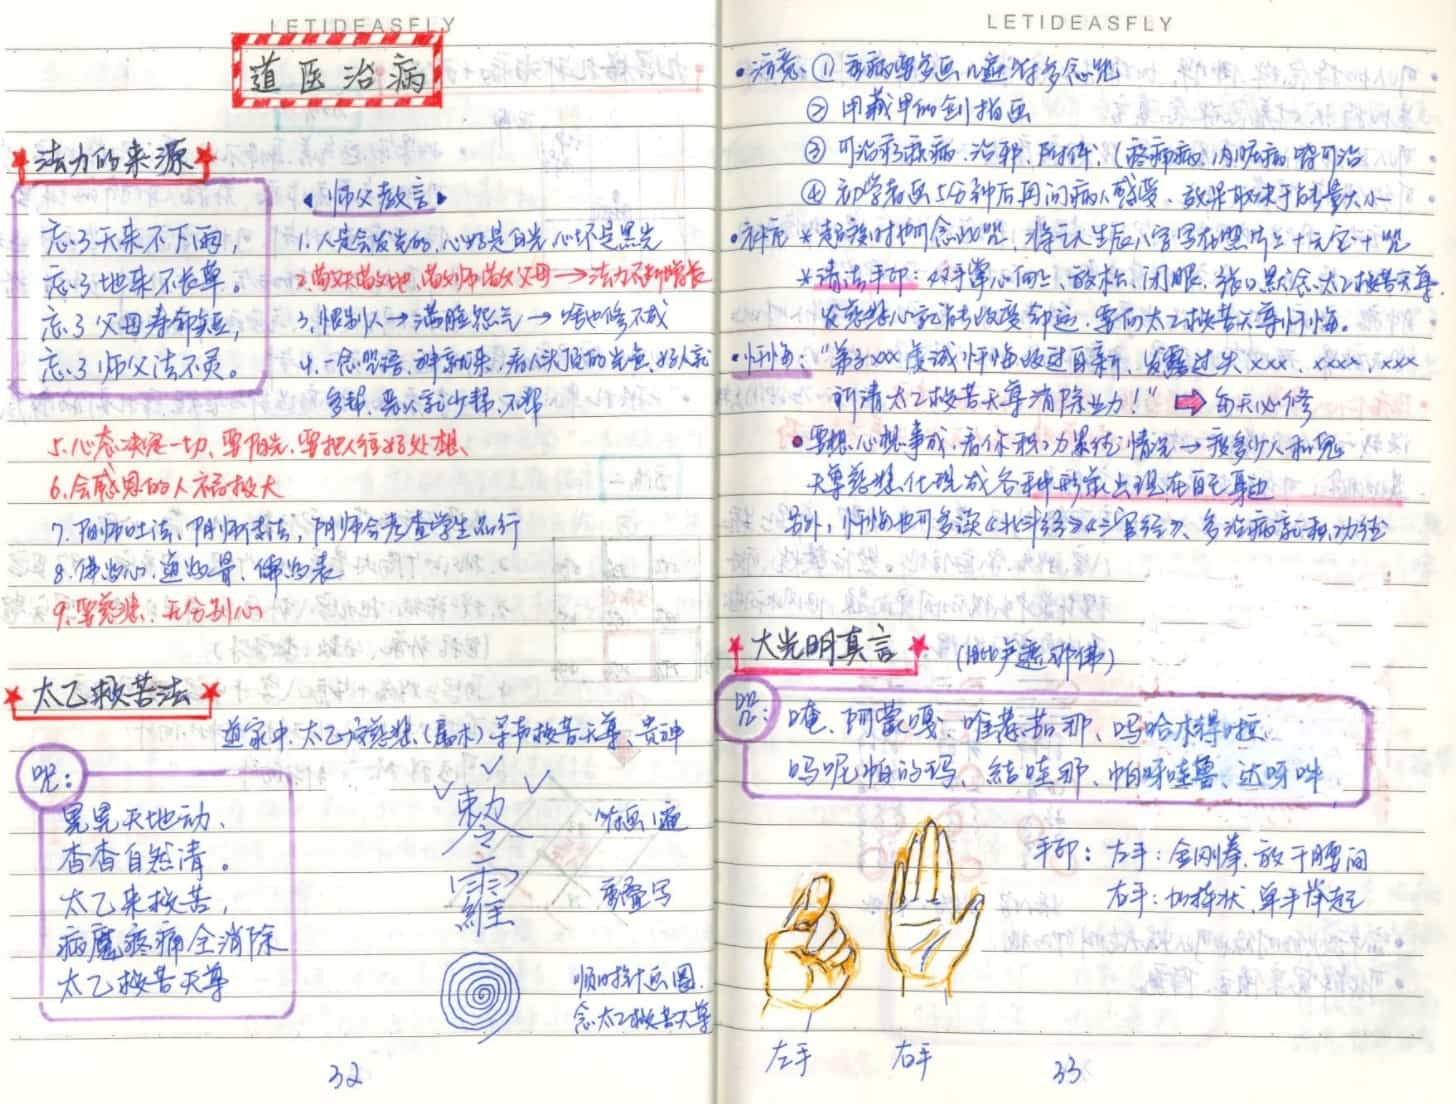 LETIDEASFLY
道医治病
法力的来源
忘了天来不下雨,
忘了地来不长草。
忘了父母寿命短,
忘了师父法不灵。
师父教言
1.人是会发光的,心好是白光,心坏是黑光
2.敬天敬地,敬师敬父母→法力不断增长
3.恨别人→满腔怨气→啥也修不成
4.一念咒语、神就来,看人头顶的光色、好人就
多帮、恶人就少帮、不帮
5.心态决定一切、要阳光、要把人往好处想、
6.会感恩的人福报大
7.阳师吐法、阴师表法,阴师会考查学生品行
8.佛为心、道为骨、儒为表
9.要慈悲、无分别心
太乙救苦法
道家中、太乙最慈悲、(属木)寻声救苦天尊、贵神
咒:
晃晃天地动、
杳杳自然清。
太乙来救苦,
病魔疼痛全消除
太乙救苦天尊
敕令
符画1遍
霐
罗
重叠写
顺时针画圈、
念太乙救苦天尊
32
LETIDEASFLY
注意:① 重病要多画几遍符多念咒
② 用藏甲的剑指画
③ 可治邪病、治邪、附体(疼痛病、内脏病皆可治
④ 初学者画5分钟后再问病人感受、效果取决于能量大小
*超度时也可念此咒,将亡人生辰八字写在照片上+元宝+咒
*请法手印:双手掌心向上、放松、闭眼、张口默念太乙救苦天尊、
发慈悲心就能改变命运、要向太乙救苦天尊忏悔。
忏悔:“弟子xxx虔诚忏悔改过自新、发露过失xxx、xxx、xxx
祈请太乙救苦天尊消除业力!” 每天必修
要想心想事成、看你积功累德情况→救多少人和鬼
天尊慈悲、化现成各种形象出现在自己身边
另外,忏悔也可多读《北斗经》《三官经》、多治病就积功德
大光明真言 (毗卢遮那佛)
咒:
唵、阿蒙嘎、唯荐茹那、吗哈木得啦、
吗呢帕的玛、结哇那、帕呀哇鲁、达呀吽
手印:左手:金刚拳、放于腰间
右手:如掌状、单手举起
左手
右手
33